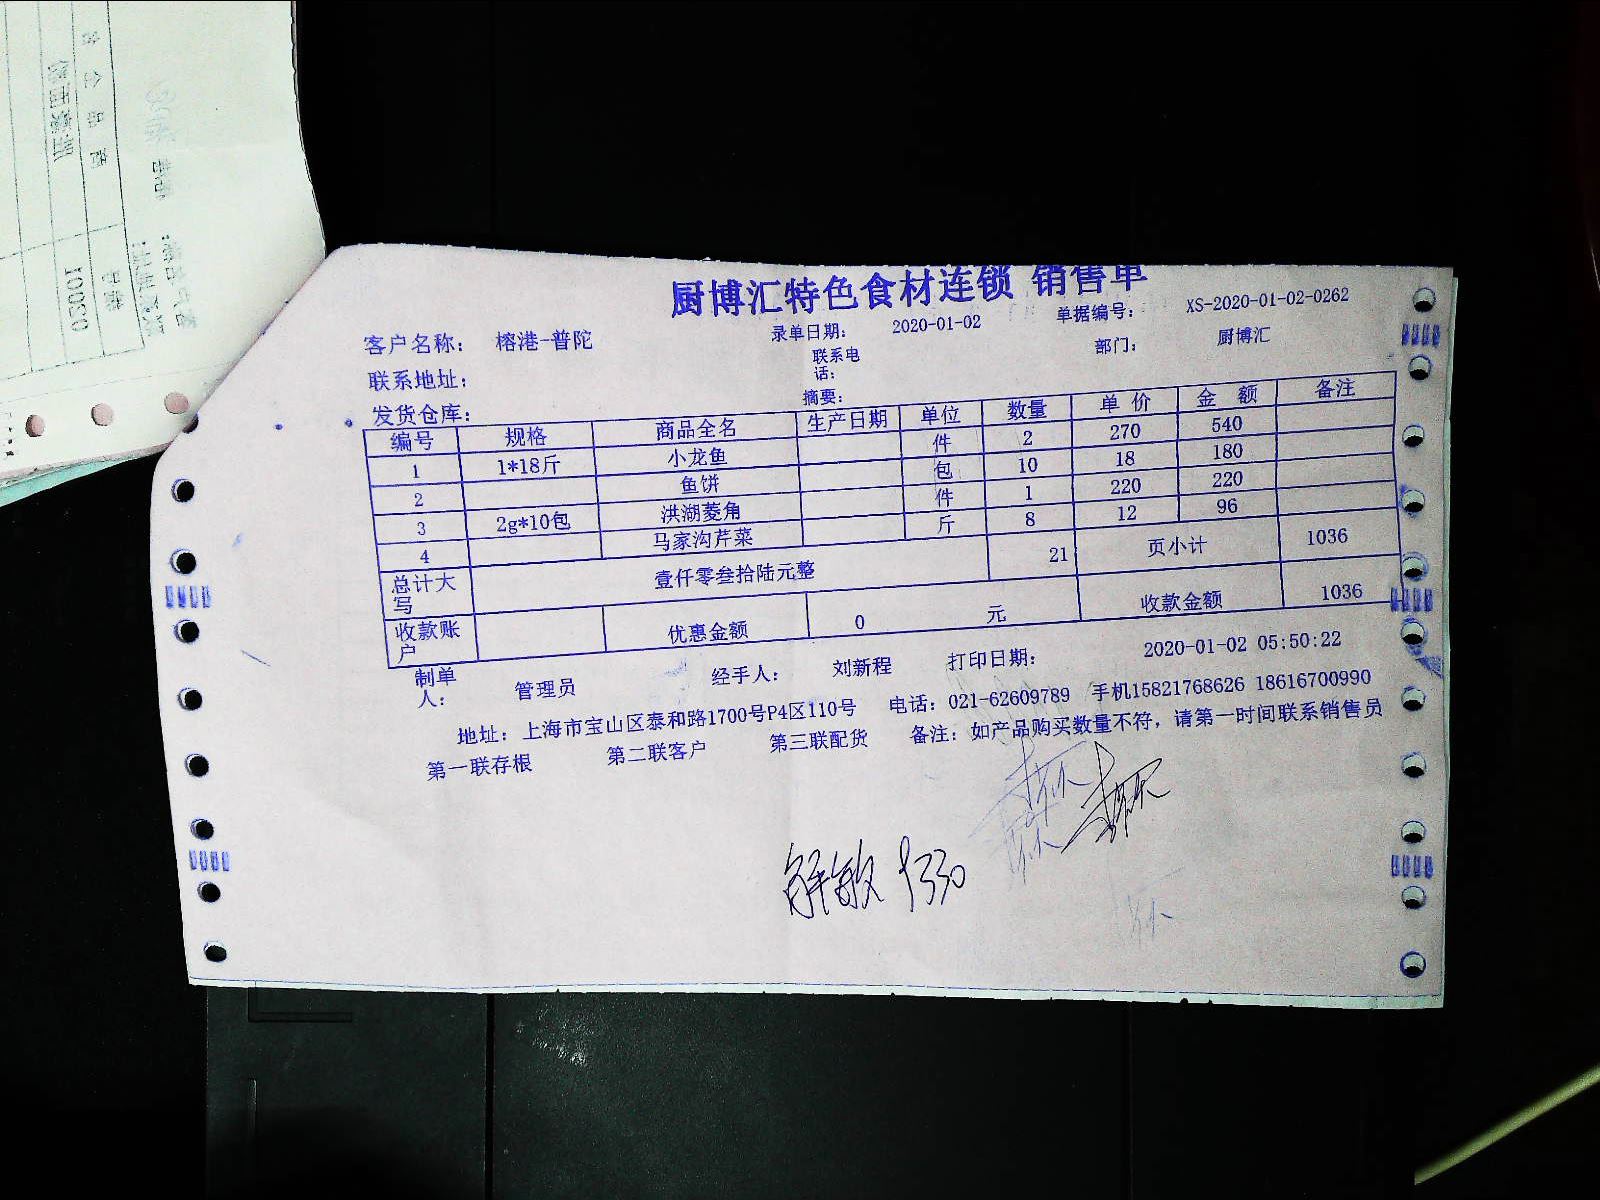 厨博汇特色食材连锁 销售单
客户名称： 榕港-普陀 录单日期： 2020-01-02 单据编号： XS-2020-01-02-0262
联系地址： 联系电话： 部门： 厨博汇
发货仓库： 摘要：
编号 规格 商品全名 生产日期 单位 数量 单 价 金 额 备注
1 1*18斤 小龙鱼 件 2 270 540
2 鱼饼 包 10 18 180
3 2g*10包 洪湖菱角 件 1 220 220
4 马家沟芹菜 斤 8 12 96
总计大写 壹仟零叁拾陆元整 21 页小计 1036
收款账户 优惠金额 0 元 收款金额 1036
制单人： 管理员 经手人： 刘新程 打印日期： 2020-01-02 05:50:22
地址：上海市宝山区泰和路1700号P4区110号 电话：021-62609789 手机15821768626 18616700990
第一联存根 第二联客户 第三联配货 备注：如产品购买数量不符，请第一时间联系销售员
解敏
10020